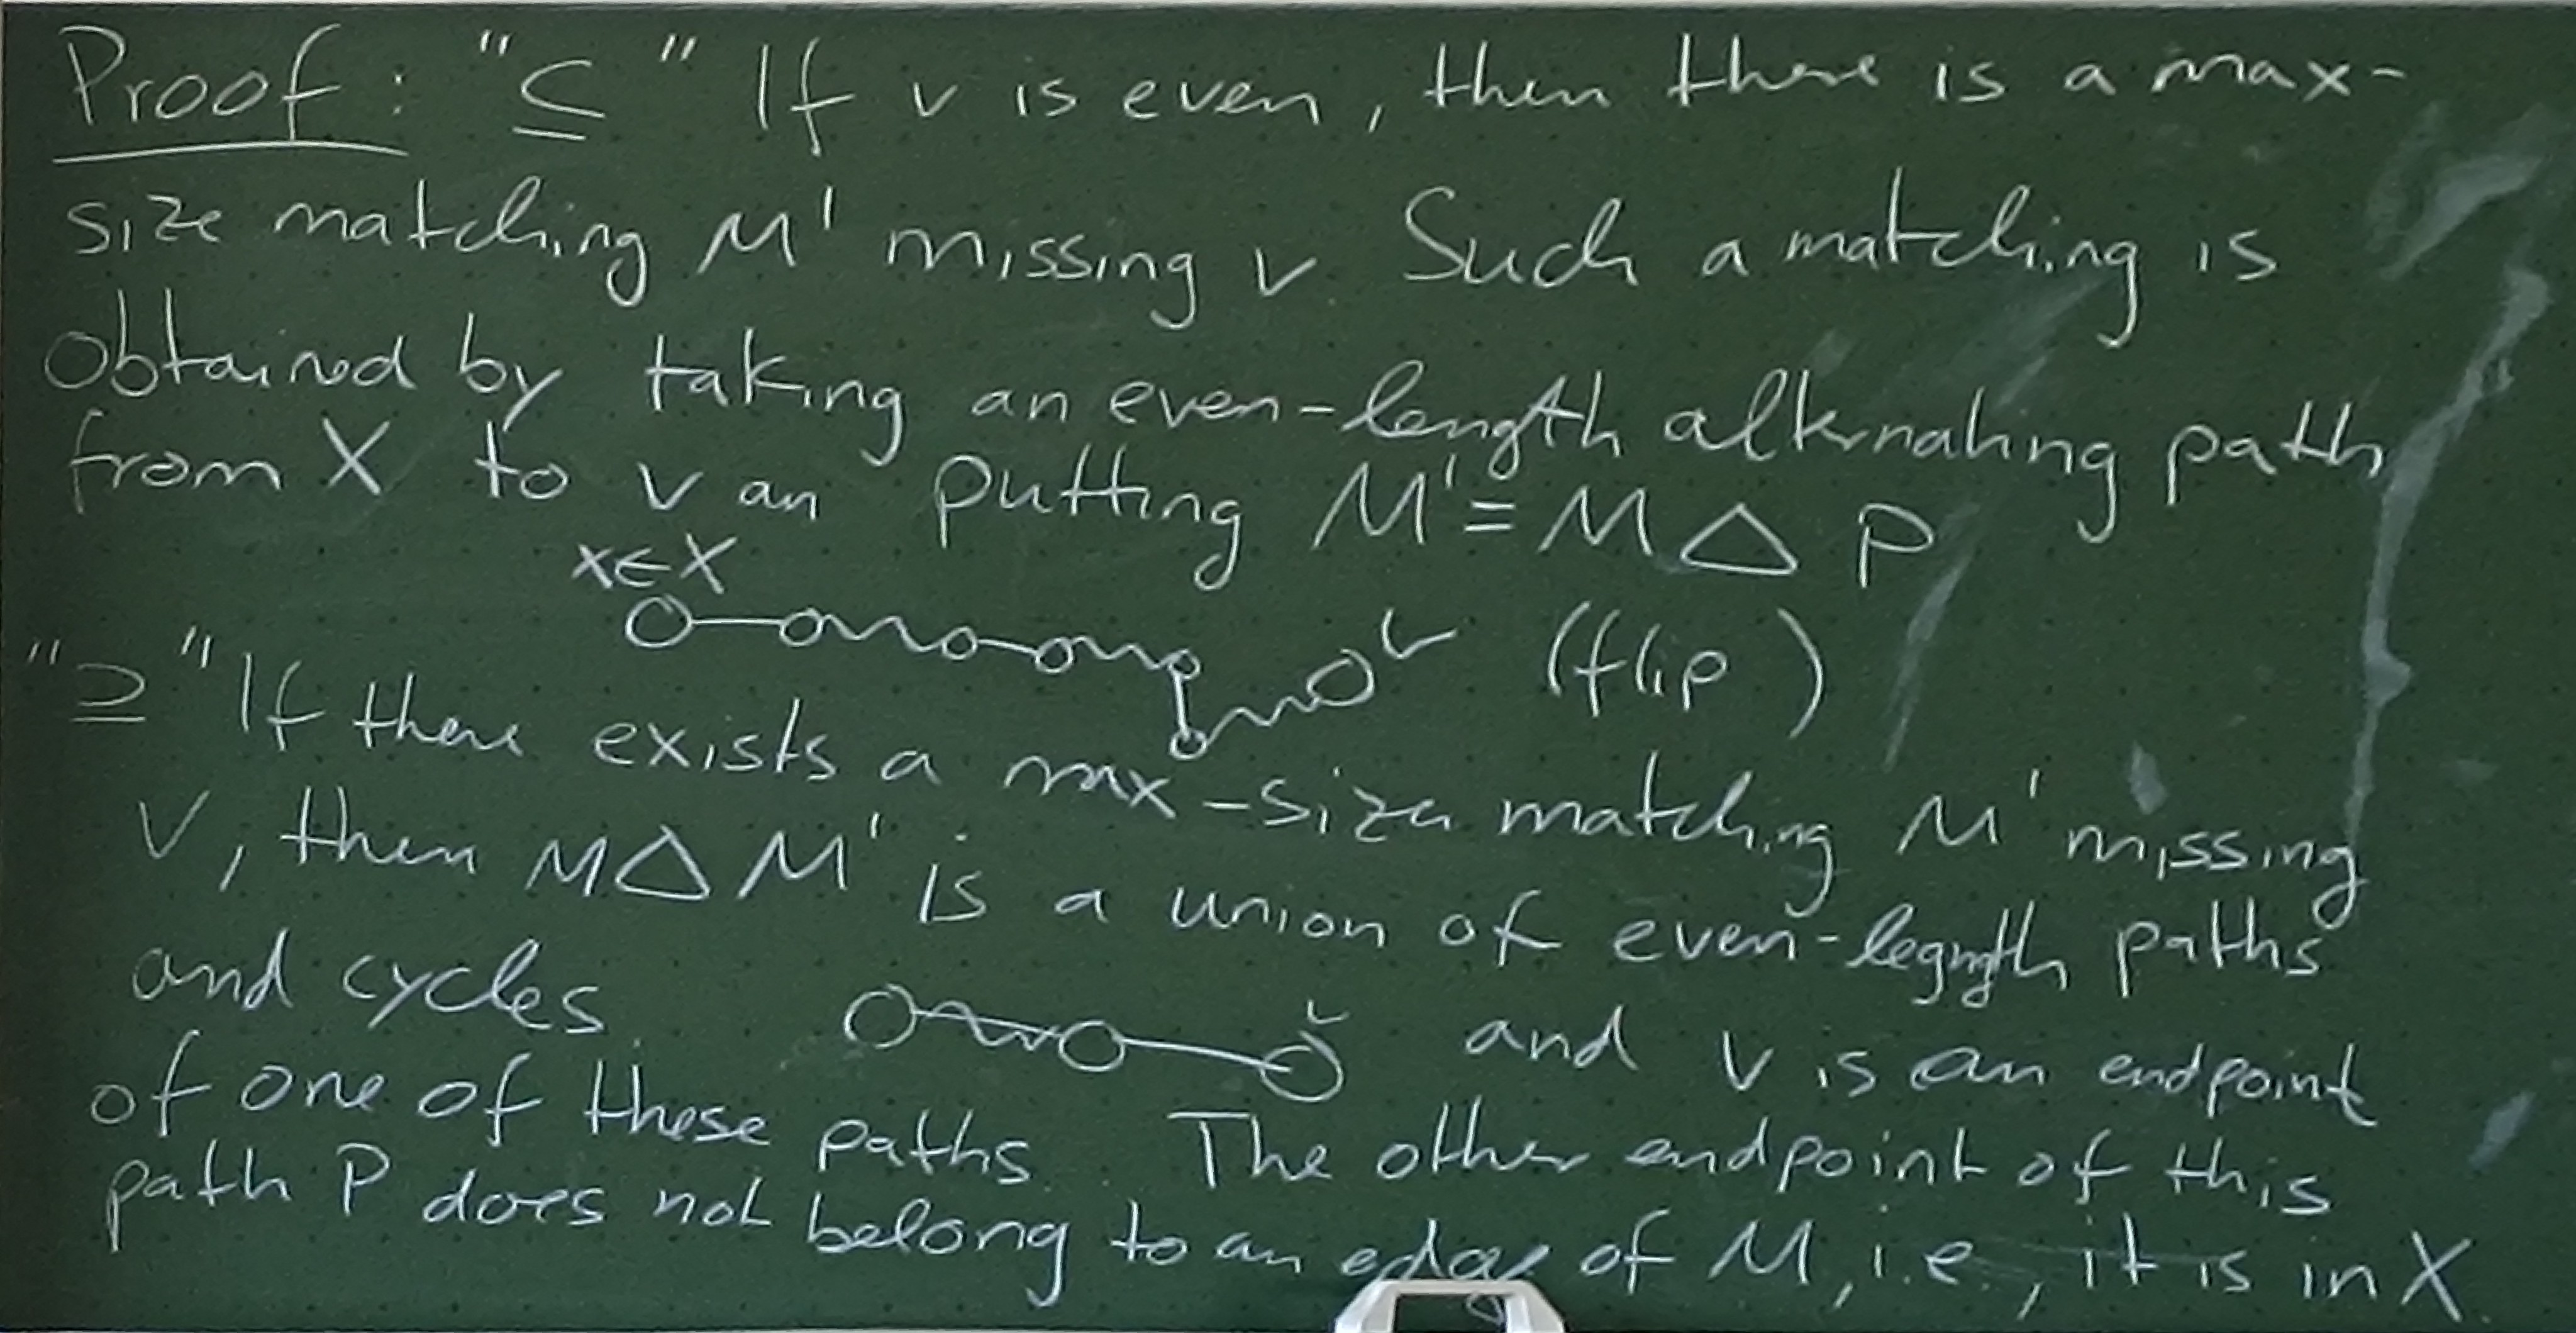 Proof: "⊆" If v is even, then there is a max-
size matching M' missing v. Such a matching is
obtained by taking an even-length alternating path
from X to v an putting M' = M △ P
x∈X
v (flip)
"⊇" If there exists a max-size matching M' missing
v, then M △ M' is a union of even-legngth paths
and cycles. v and v is an endpoint
of one of these paths. The other endpoint of this
path P does not belong to an edge of M, i.e., it is in X.